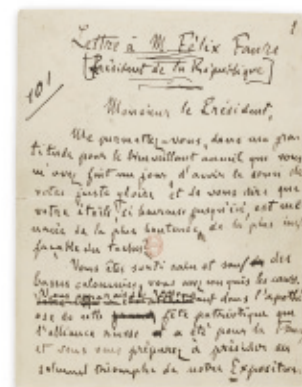 1
Lettre à M. Félix Faure
[Président de la République]
101
Monsieur le Président,
Me permettez-vous, dans ma gra-
titude pour le bienveillant accueil que vous
m'avez fait un jour, d'avoir le souci de
votre juste gloire et de vous dire que
votre étoile, si heureuse jusqu'ici, est me-
nacée de la plus honteuse, de la plus inef-
façable des taches?
Vous êtes sorti sain et sauf des
basses calomnies, vous avez conquis les cœurs.
dans l'apothé-
ose de cette fête patriotique que
l'alliance russe a été pour la France,
et vous vous préparez à présider au
solennel triomphe de notre Exposition